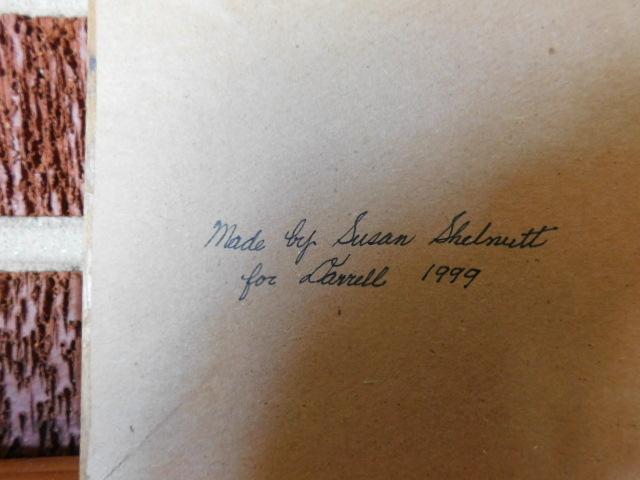 Made by Susan Shelnutt
for Darrell 1999